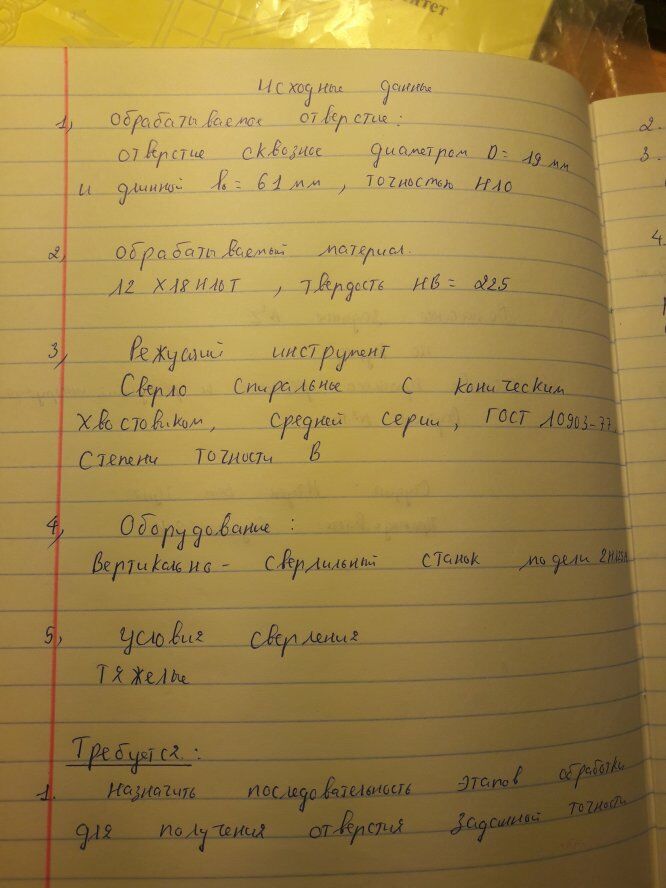 итет
Исходные данные
1, Обрабатываемое отверстие:
отверстие сквозное диаметром D= 19 мм
и длинной l₀ = 61 мм, точностью H10
2, Обрабатываемый материал.
12 Х18Н10Т, твердость HB = 225
3, Режущий инструмент
Сверло спиральное с коническим
хвостовиком, средней серии, ГОСТ 10903-77.
Степени точности В
4, Оборудование:
Вертикально - сверлильный станок модели
5, Условия сверления
Тяжелые
Требуется.:
1. Назначить последовательность этапов обработки
для получения отверстия заданной точности
2.
3.
4.